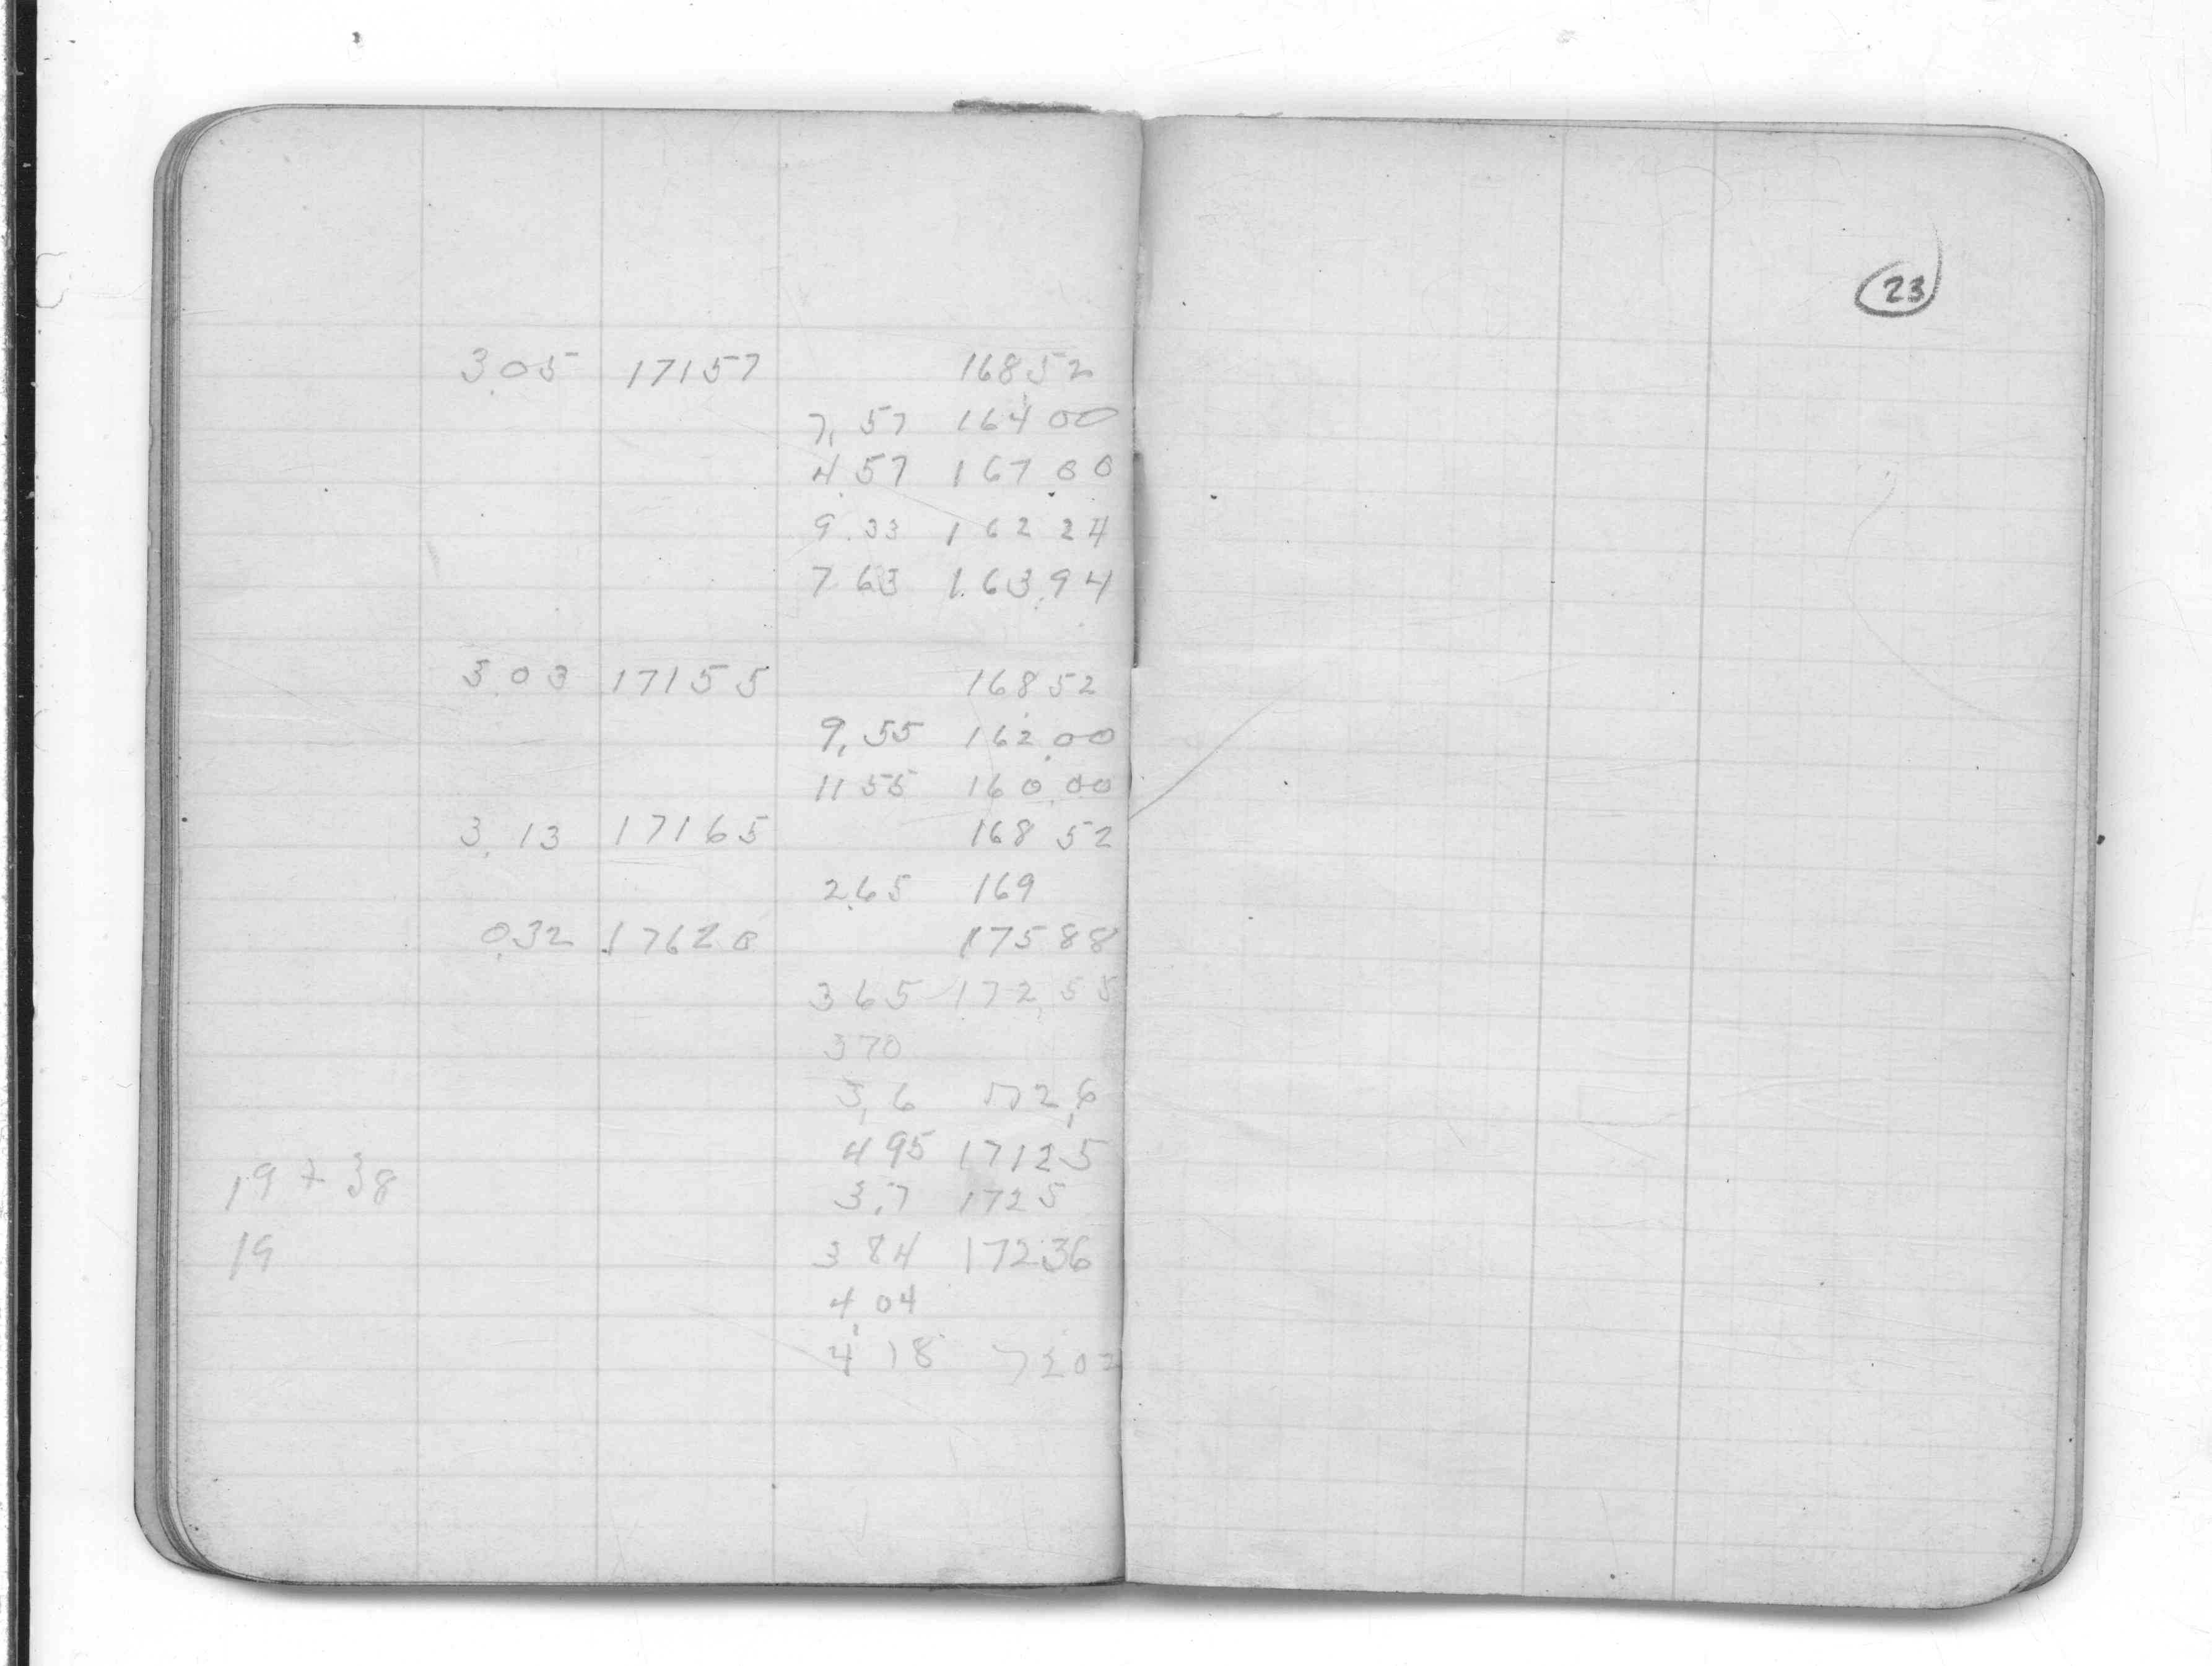 3.05 17157 16852
7,57 164 00
4 57 167 00
9.33 162 24
7 63 163.94
3 03 17155 16852
9,55 162.00
11 55 160.00
3.13 17165 168 52
2.65 169
0.32 17620 17588
3 65 172,55
3 70
3,6 172,6
4 95 17125
19 + 38 3,7 1725
19 3 84 172 36
4 04
4 18 7202
23